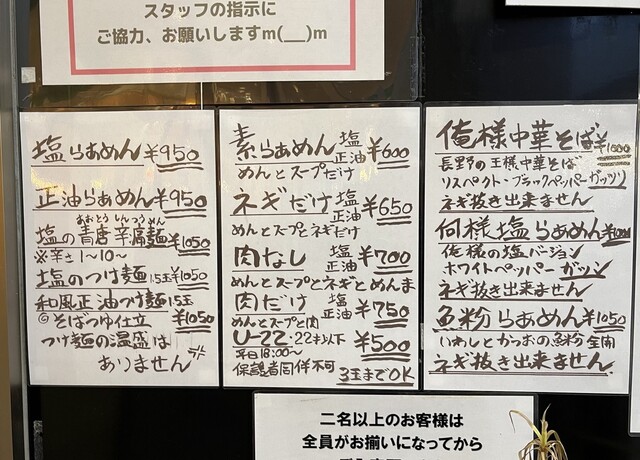 スタッフの指示に
ご協力、お願いしますm(__)m
塩らぁめん¥950
正油らぁめん¥950
あおとう しんつうめん
塩の青唐辛痛麺¥1050
※辛さ1〜10〜
塩のつけ麺1.5玉¥1050
和風正油つけ麺1.5玉
◎そばつゆ仕立 ¥1050
つけ麺の温盛は
ありません
素らぁめん 塩 正油 ¥600
めんとスープだけ
ネギだけ 塩 正油 ¥650
めんとスープとネギだけ
肉なし 塩 正油 ¥700
めんとスープとネギとめんま
肉だけ 塩 正油 ¥750
めんとスープと肉
U-22・22才以下 ¥500
平日18:00〜
保護者同伴不可 3玉までOK
俺様中華そば¥1000
長野の王様中華そば
リスペクト・ブラックペッパーガッツリ
ネギ抜き出来ません
何様塩らぁめん¥1000
俺様の塩バージョン
ホワイトペッパーガッツン
ネギ抜き出来ません
魚粉らぁめん¥1050
いわしとかつおの魚粉全開
ネギ抜き出来ません
二名以上のお客様は
全員がお揃いになってから